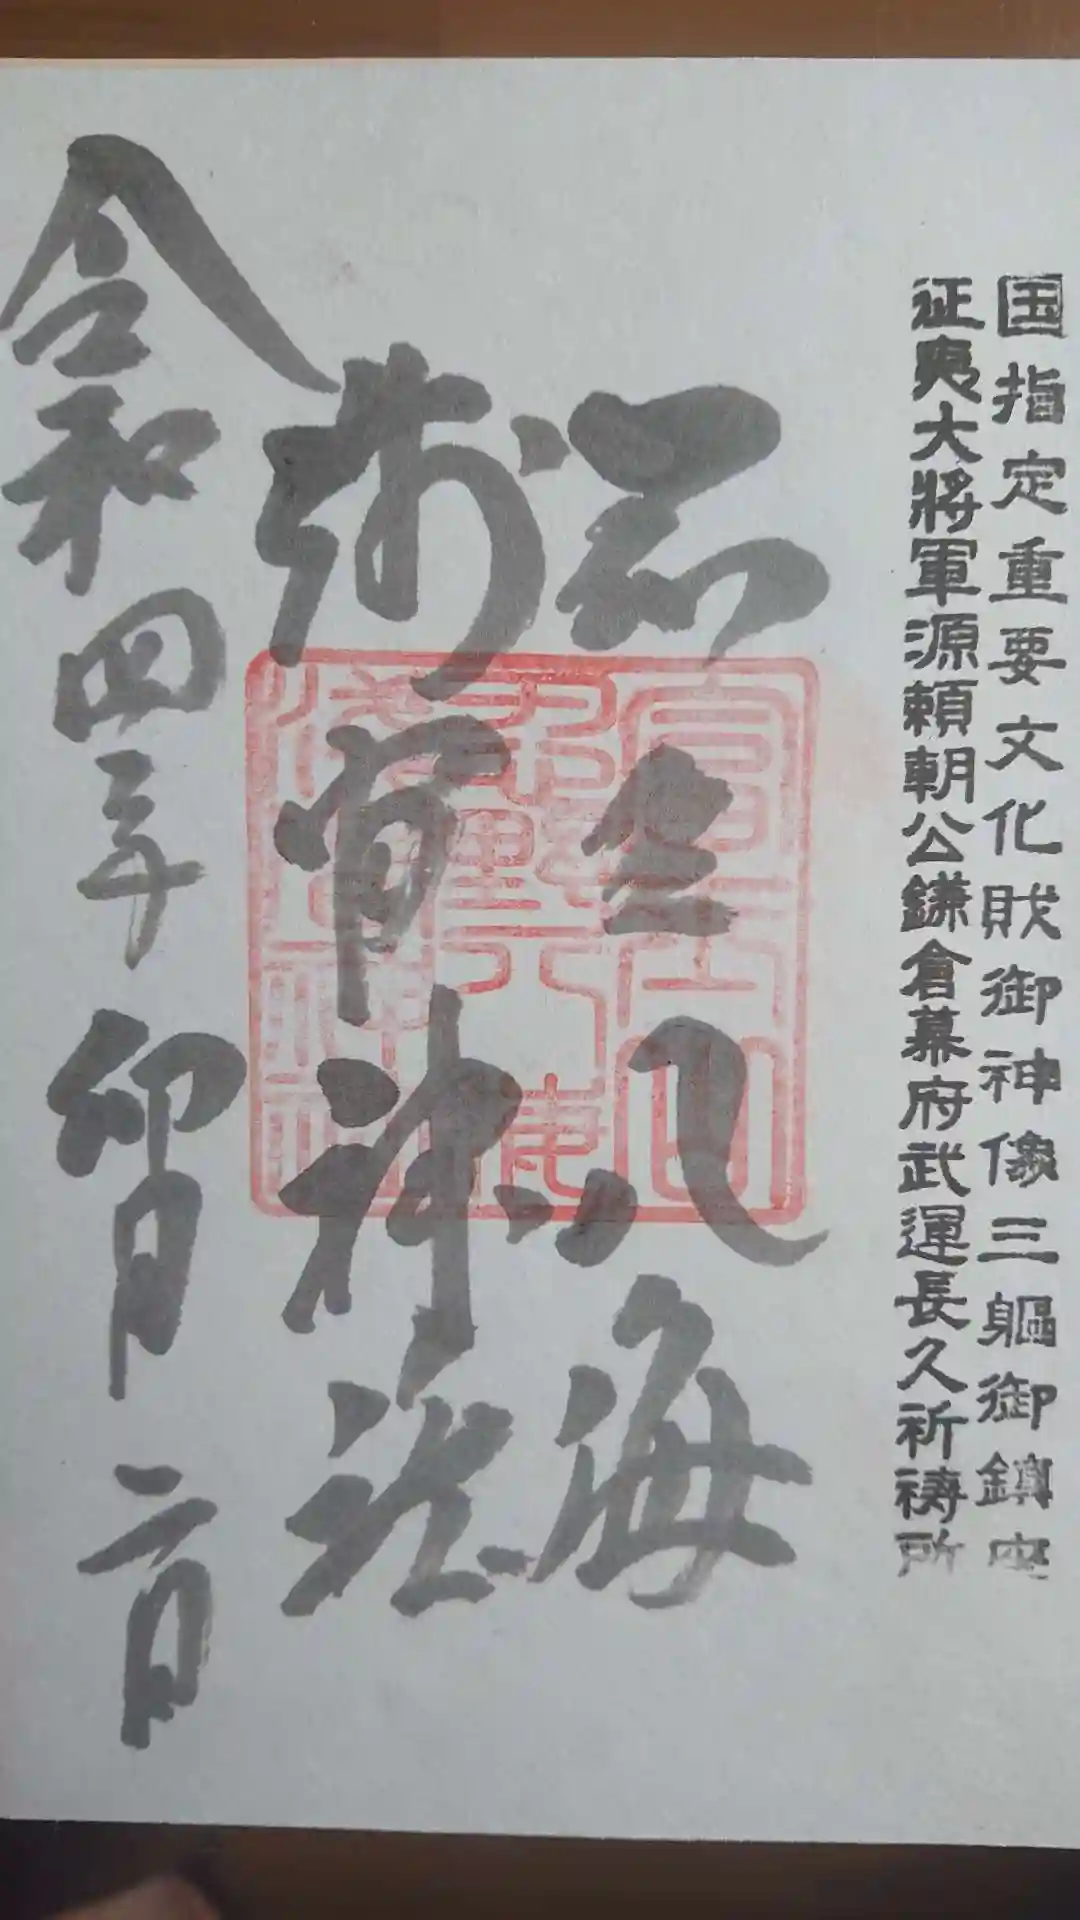 国指定重要文化財御神像三軀御鎮座
征夷大将軍源頼朝公鎌倉幕府武運長久祈祷所
八海
浅間神社
令和四年卯月二日